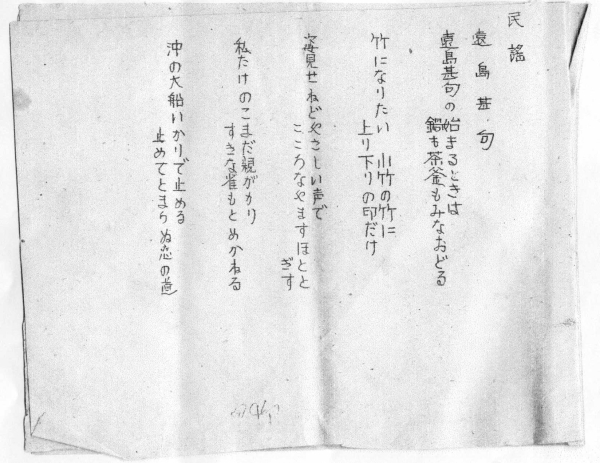 民謡
遠島甚句
遠島甚句の始まるときは
鍋も茶釜もみなおどる
竹になりたい 小竹の竹に
上り下りの印だけ
姿見せねどやさしい声で
こころなやますほとと
ぎす
私たけのこまだ親がかり
すきな雀もとめかねる
沖の大船いかりで止める
止めてとまらぬ恋の道